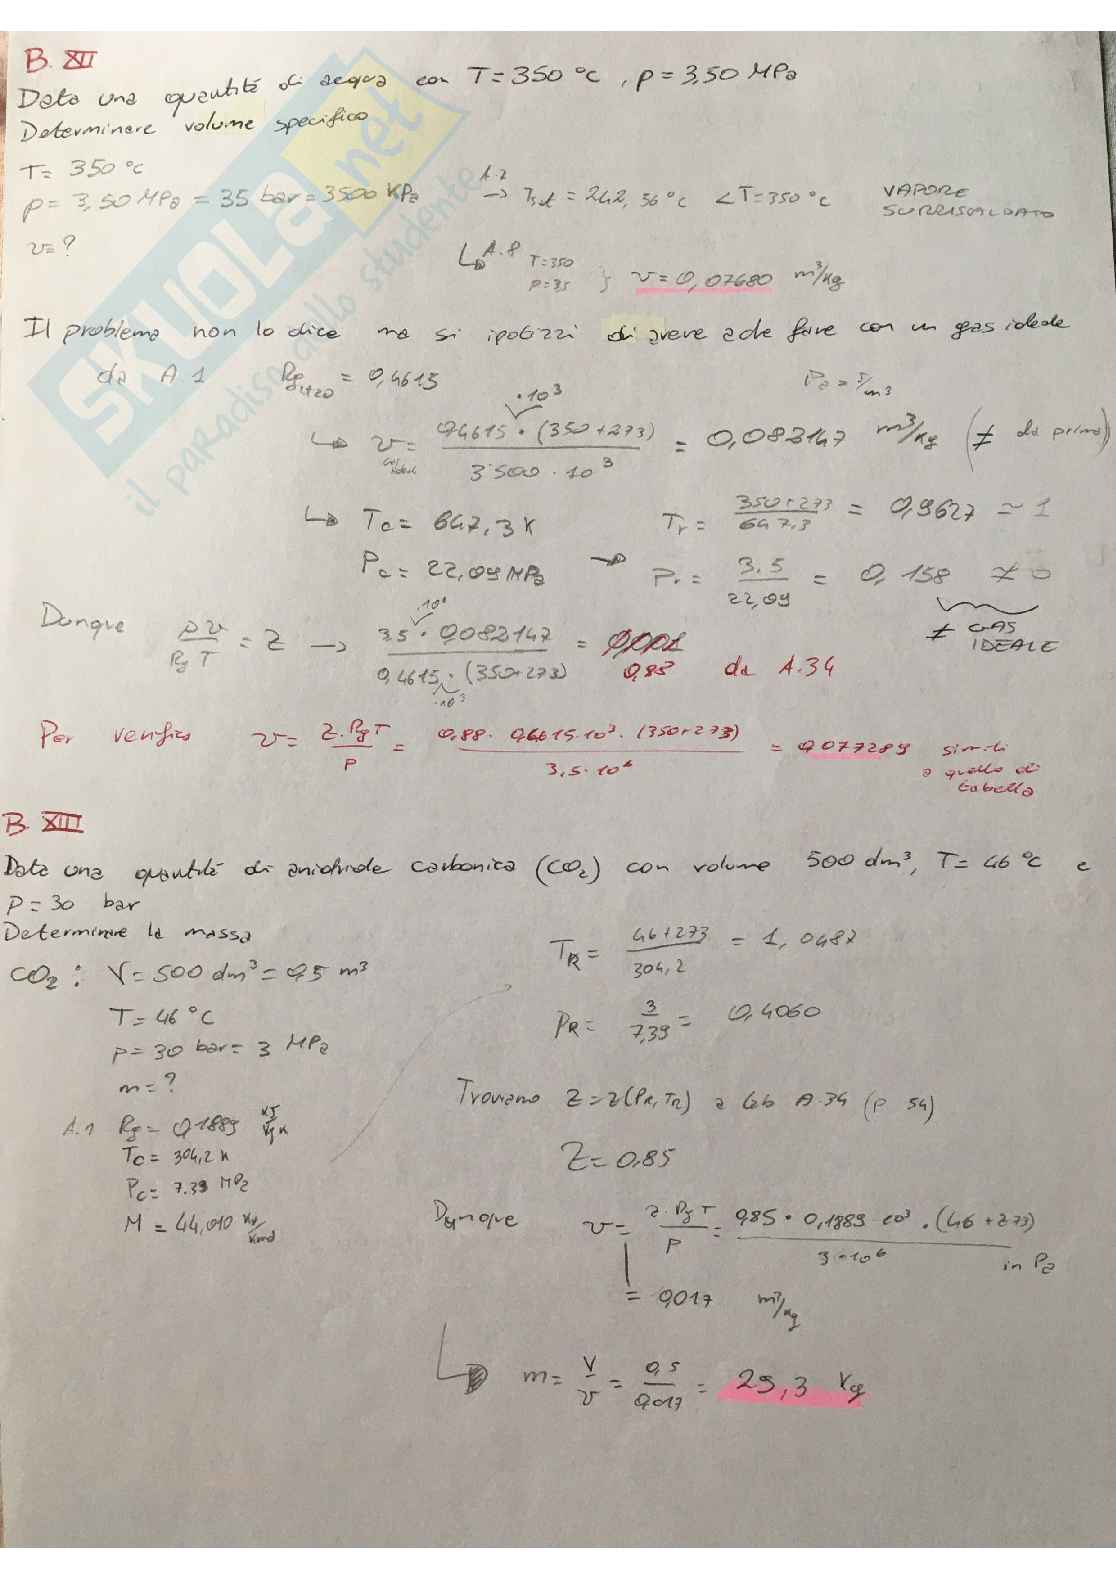 B. XII
Data una quantité di acqua con T = 350 °C , p = 3,50 MPa
Determinare volume specifico
T = 350 °C
p = 3,50 MPa = 35 bar = 3500 KPa → A.2 Tsat = 242,56 °C < T = 350 °C VAPORE SURRISCALDATO
v = ?
↳ A.8 T = 350 p = 35 } v = 0,07680 m³/kg
Il problema non lo dice ma si ipotizzi di avere a che fare con un gas ideale
da A 1 Rg H2O = 0,4615 Pa = J/m³
↳ v = 0,4615 · 10³ · (350 + 273) / 3500 · 10³ = 0,082147 m³/kg (≠ da prima)
↳ Tc = 647,3 K Tr = 350 + 273 / 647,3 = 0,9627 ≃ 1
Pc = 22,09 MPa → Pr = 3.5 / 22,09 = 0,158 ≠ 0
≠ GAS IDEALE
Dunque pv / Rg T = Z → 3.5 · 10⁶ · 0,082147 / 0,4615 · 10³ · (350 + 273) = 0,88 da A.34
Per verifica v = Z · Rg T / P = 0,88 · 0,4615 · 10³ · (350 + 273) / 3,5 · 10⁶ = 0,077289 simili a quello di tabella
B. XIII
Data una quantité di anidride carbonica (CO₂) con volume 500 dm³, T = 46 °C e
P = 30 bar
Determinare la massa
CO₂ : V = 500 dm³ = 0,5 m³
T = 46 °C
p = 30 bar = 3 MPa
m = ?
A.1 Rg = 0,1889 KJ/Kg K
Tc = 304,2 K
Pc = 7.39 MPa
M = 44,010 Kg/Kmol
TR = 46 + 273 / 304,2 = 1,0487
PR = 3 / 7,39 = 0,4060
Troviamo Z = Z (PR, TR) a tab A.34 (p 54)
Z = 0,85
Dunque v = Z · Rg T / P = 0,85 · 0,1889 · 10³ · (46 + 273) / 3 · 10⁶ in Pa
= 0,017 m³/kg
↳ m = V / v = 0,5 / 0,017 = 29,3 Kg
SKUOLA.net
il paradiso dello studente